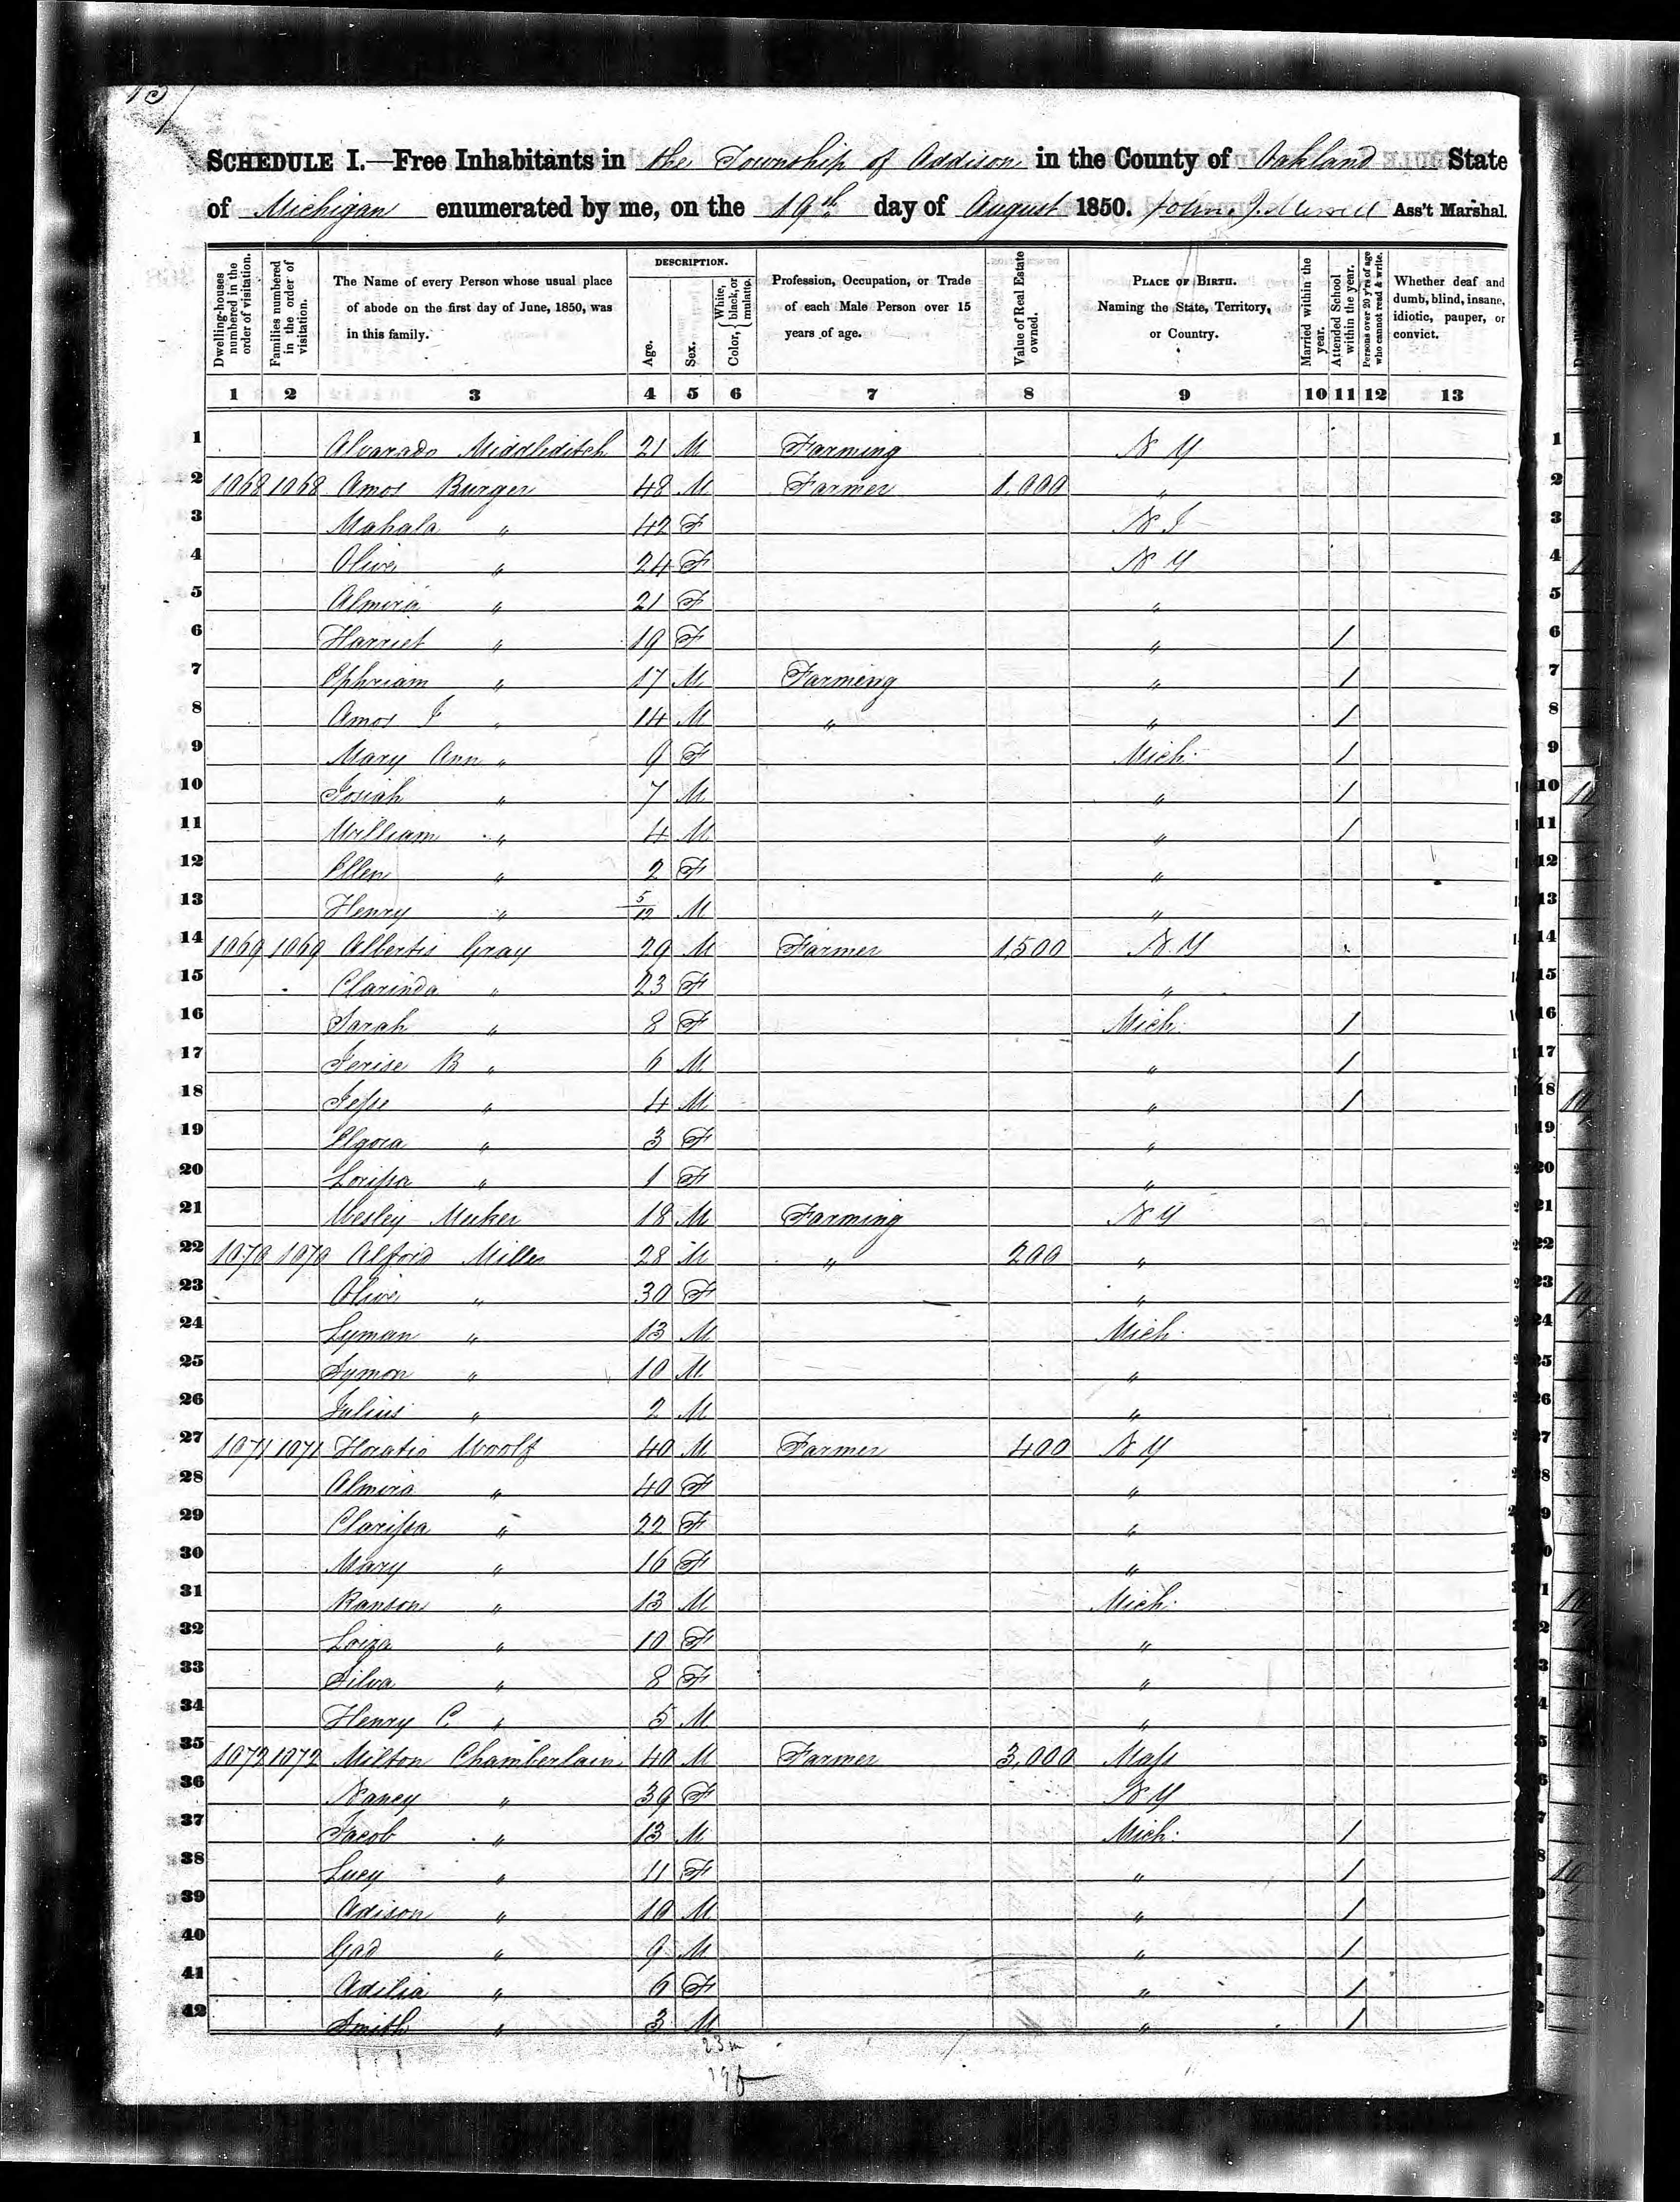 SCHEDULE I.—Free Inhabitants in the Township of Addison in the County of Oakland State
of Michigan enumerated by me, on the 19th day of August 1850. John J. Ass't Marshal.
Dwelling-houses numbered in the order of visitation. Families numbered in the order of visitation. The Name of every Person whose usual place of abode on the first day of June, 1850, was in this family. DESCRIPTION. Age. Sex. Color, { White, black, or mulatto. Profession, Occupation, or Trade of each Male Person over 15 years of age. Value of Real Estate owned. PLACE OF BIRTH. Naming the State, Territory, or Country. Married within the year. Attended School within the year. Persons over 20 y'rs of age who cannot read & write. Whether deaf and dumb, blind, insane, idiotic, pauper, or convict.
1 2 3 4 5 6 7 8 9 10 11 12 13
1 Alvarado Middleditch 21 M Farming N Y 1
2 1068 1068 Amos Burger 48 M Farmer 1,000 " 2
3 Mahala " 42 F N J 3
4 Olive " 24 F N Y 4
5 Almira " 21 F " 5
6 Harriet " 19 F " / 6
7 Ephriam " 17 M Farming " / 7
8 Amos J " 14 M " " / 8
9 Mary Ann " 9 F Mich. / 9
10 Josiah " 7 M " / 10
11 William " 4 M " / 11
12 Ellen " 2 F " 12
13 Henry " 5/12 M " 13
14 1069 1069 Albertis Gray 29 M Farmer 1,500 N.Y 14
15 Clarinda " 23 F " 15
16 Sarah " 8 F Mich. / 16
17 Jerise B " 6 M " / 17
18 Jesse " 4 M " / 18
19 Elgora " 3 F " 19
20 Lorissa " 1 F " 20
21 Wesley Meeker 18 M Farming N Y 21
22 1070 1070 Alford Miller 28 M " 200 " 22
23 Olive " 30 F " 23
24 Lyman " 13 M Mich. 24
25 Symon " 10 M " 25
26 Julius " 2 M " 26
27 1071 1071 Horatio Woolf 40 M Farmer 400 N Y
28 Almira " 40 F "
29 Clarissa " 22 F "
30 Mary " 16 F "
31 Ranson " 13 M Mich.
32 Loiza " 10 F "
33 Silva " 8 F "
34 Henry C. " 5 M "
35 1072 1072 Milton Chamberlain 40 M Farmer 3,000 Mass
36 Nancy " 39 F N Y
37 Jacob " 13 M Mich. /
38 Lucy " 11 F " /
39 Adison " 10 M " /
40 Gad " 9 M " /
41 Adilia " 6 F " /
42 Smith " 3 M " /
23 m
19 f